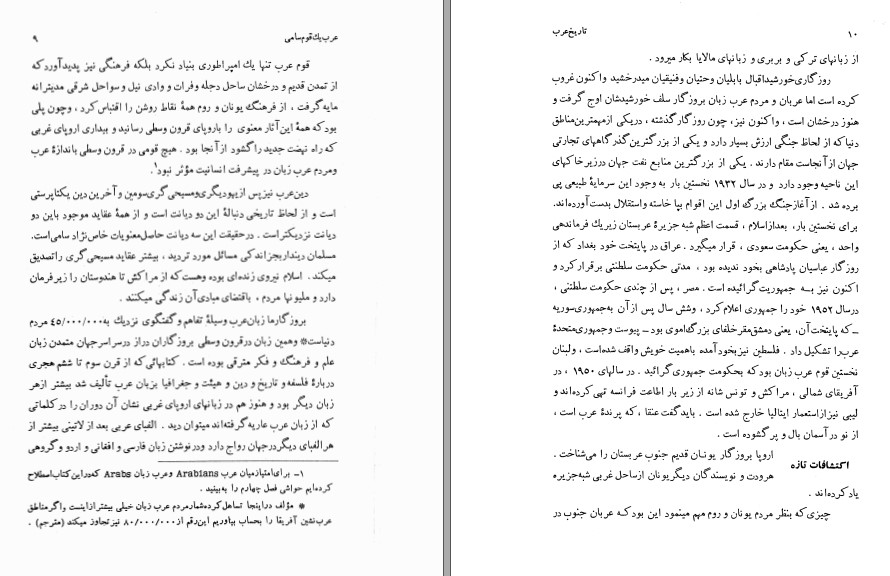 عرب یك قوم سامی ۹
قوم عرب تنها یك امپراطوری بنیاد نکرد بلکه فرهنگی نیز پدید آورد که
از تمدن قدیم و درخشان ساحل دجله وفرات و وادی نیل و سواحل شرقی مدیترانه
مایه گرفت ، از فرهنگ یونان و روم همهٔ نقاط روشن را اقتباس کرد ، وچون پلی
بود که همهٔ این آثار معنوی را باروپای قرون وسطی رسانید و بیداری اروپای غربی
که راه نهضت جدید را گشود از آنجا بود . هیچ قومی در قرون وسطی باندازهٔ عرب
ومردم عرب زبان در پیشرفت انسانیت مؤثر نبود۱.
دین عرب نیز پس از یهودیگری و مسیحی گری سومین و آخرین دین یکتاپرستی
است و از لحاظ تاریخی دنبالهٔ این دو دیانت است و از همهٔ عقاید موجود باین دو
دیانت نزدیکتر است . در حقیقت این سه دیانت حاصل معنویات خاص نژاد سامی است.
مسلمان دیندار بجز اندکی مسائل مورد تردید ، بیشتر عقاید مسیحی گری را تصدیق
میکند . اسلام نیروی زنده‌ای بوده وهست که از مراکش تا هندوستان را زیر فرمان
دارد و ملیونها مردم ، باقتضای مبادی آن زندگی میکنند .
بروزگار ما زبان عرب وسیلهٔ تفاهم و گفتگوی نزدیك به ۴۵/۰۰۰/۰۰۰ مردم
دنیاست* وهمین زبان در قرون وسطی بروزگاران دراز در سراسر جهان متمدن زبان
علم و فرهنگ و فکر مترقی بوده است . کتابهائی که از قرن سوم تا ششم هجری
دربارهٔ فلسفه و تاریخ و دین و هیئت و جغرافیا بزبان عرب تألیف شد بیشتر از هر
زبان دیگر بود و هنوز هم در زبانهای اروپای غربی نشان آن دوران را در کلماتی
که از زبان عرب عاریه گرفته‌اند میتوان دید . الفبای عربی بعد از لاتینی بیشتر از
هر الفبای دیگر در جهان رواج دارد ودر نوشتن زبان فارسی و افغانی و اردو و گروهی
۱- برای امتیاز میان عرب Arabians وعرب زبان Arabs که در این کتاب اصطلاح
کرده‌ایم حواشی فصل چهارم را ببینید .
* مؤلف در اینجا تساهل کرده شمار مردم عرب زبان خیلی بیشتر از اینست واگر مناطق
عرب نشین آفریقا را بحساب بیاوریم این رقم از ۸۰/۰۰۰/۰۰۰ نیز تجاوز میکند (مترجم) .
۱۰ تاریخ عرب
از زبانهای ترکی و بربری و زبانهای مالایا بکار میرود .
روزگاری خورشید اقبال بابلیان وحتیان وفنیقیان میدرخشید واکنون غروب
کرده است اما عربان و مردم عرب زبان بروزگار سلف خورشیدشان اوج گرفت و
هنوز درخشان است ، واکنون نیز، چون روزگار گذشته ، در یکی از مهمترین مناطق
دنیا که از لحاظ جنگی ارزش بسیار دارد و یکی از بزرگترین گذرگاههای تجارتی
جهان از آنجاست مقام دارند . یکی از بزرگترین منابع نفت جهان در زیر خاکهای
این ناحیه وجود دارد و در سال ۱۹۳۲ نخستین بار به وجود این سرمایهٔ طبیعی پی
برده شد . از آغاز جنگ بزرگ اول این اقوام بپا خاسته واستقلال بدست آورده‌اند.
برای نخستین بار، بعد از اسلام ، قسمت اعظم شبه جزیرهٔ عربستان زیر یك فرماندهی
واحد ، یعنی حکومت سعودی ، قرار میگیرد . عراق در پایتخت خود بغداد که از
روزگار عباسیان پادشاهی بخود ندیده بود ، مدتی حکومت سلطنتی برقرار کرد و
اکنون نیز بـه جمهوریت گرائیده است . مصر ، پس از چندی حکومت سلطنتی ،
در سال ۱۹۵۲ خود را جمهوری اعلام کرد ، وشش سال پس از آن به جمهوری سوریه
ـ که پایتخت آن، یعنی دمشق مقر خلفای بزرگ اموی بود ـ پیوست و جمهوری متحدهٔ
عرب را تشکیل داد . فلسطین نیز بخود آمده باهمیت خویش واقف شده است ، ولبنان
نخستین قوم عرب زبان بود که بحکومت جمهوری گرائید . در سالهای ۱۹۵۰ ، در
آفریقای شمالی ، مراکش و تونس شانه از زیر بار اطاعت فرانسه تهی کرده‌اند و
لیبی نیز از استعمار ایتالیا خارج شده است . باید گفت عنقا ، که پرندهٔ عرب است ،
از نو در آسمان بال و پر گشوده است .
اکتشافات تازه اروپا بروزگار یونـان قدیم جنوب عربستان را می‌شناخت .
هرودت و نویسندگان دیگر یونان از ساحل غربی شبه جزیره
یاد کرده‌اند .
چیزی که بنظر مردم یونان و روم مهم مینمود این بود کـه عربان جنوب در